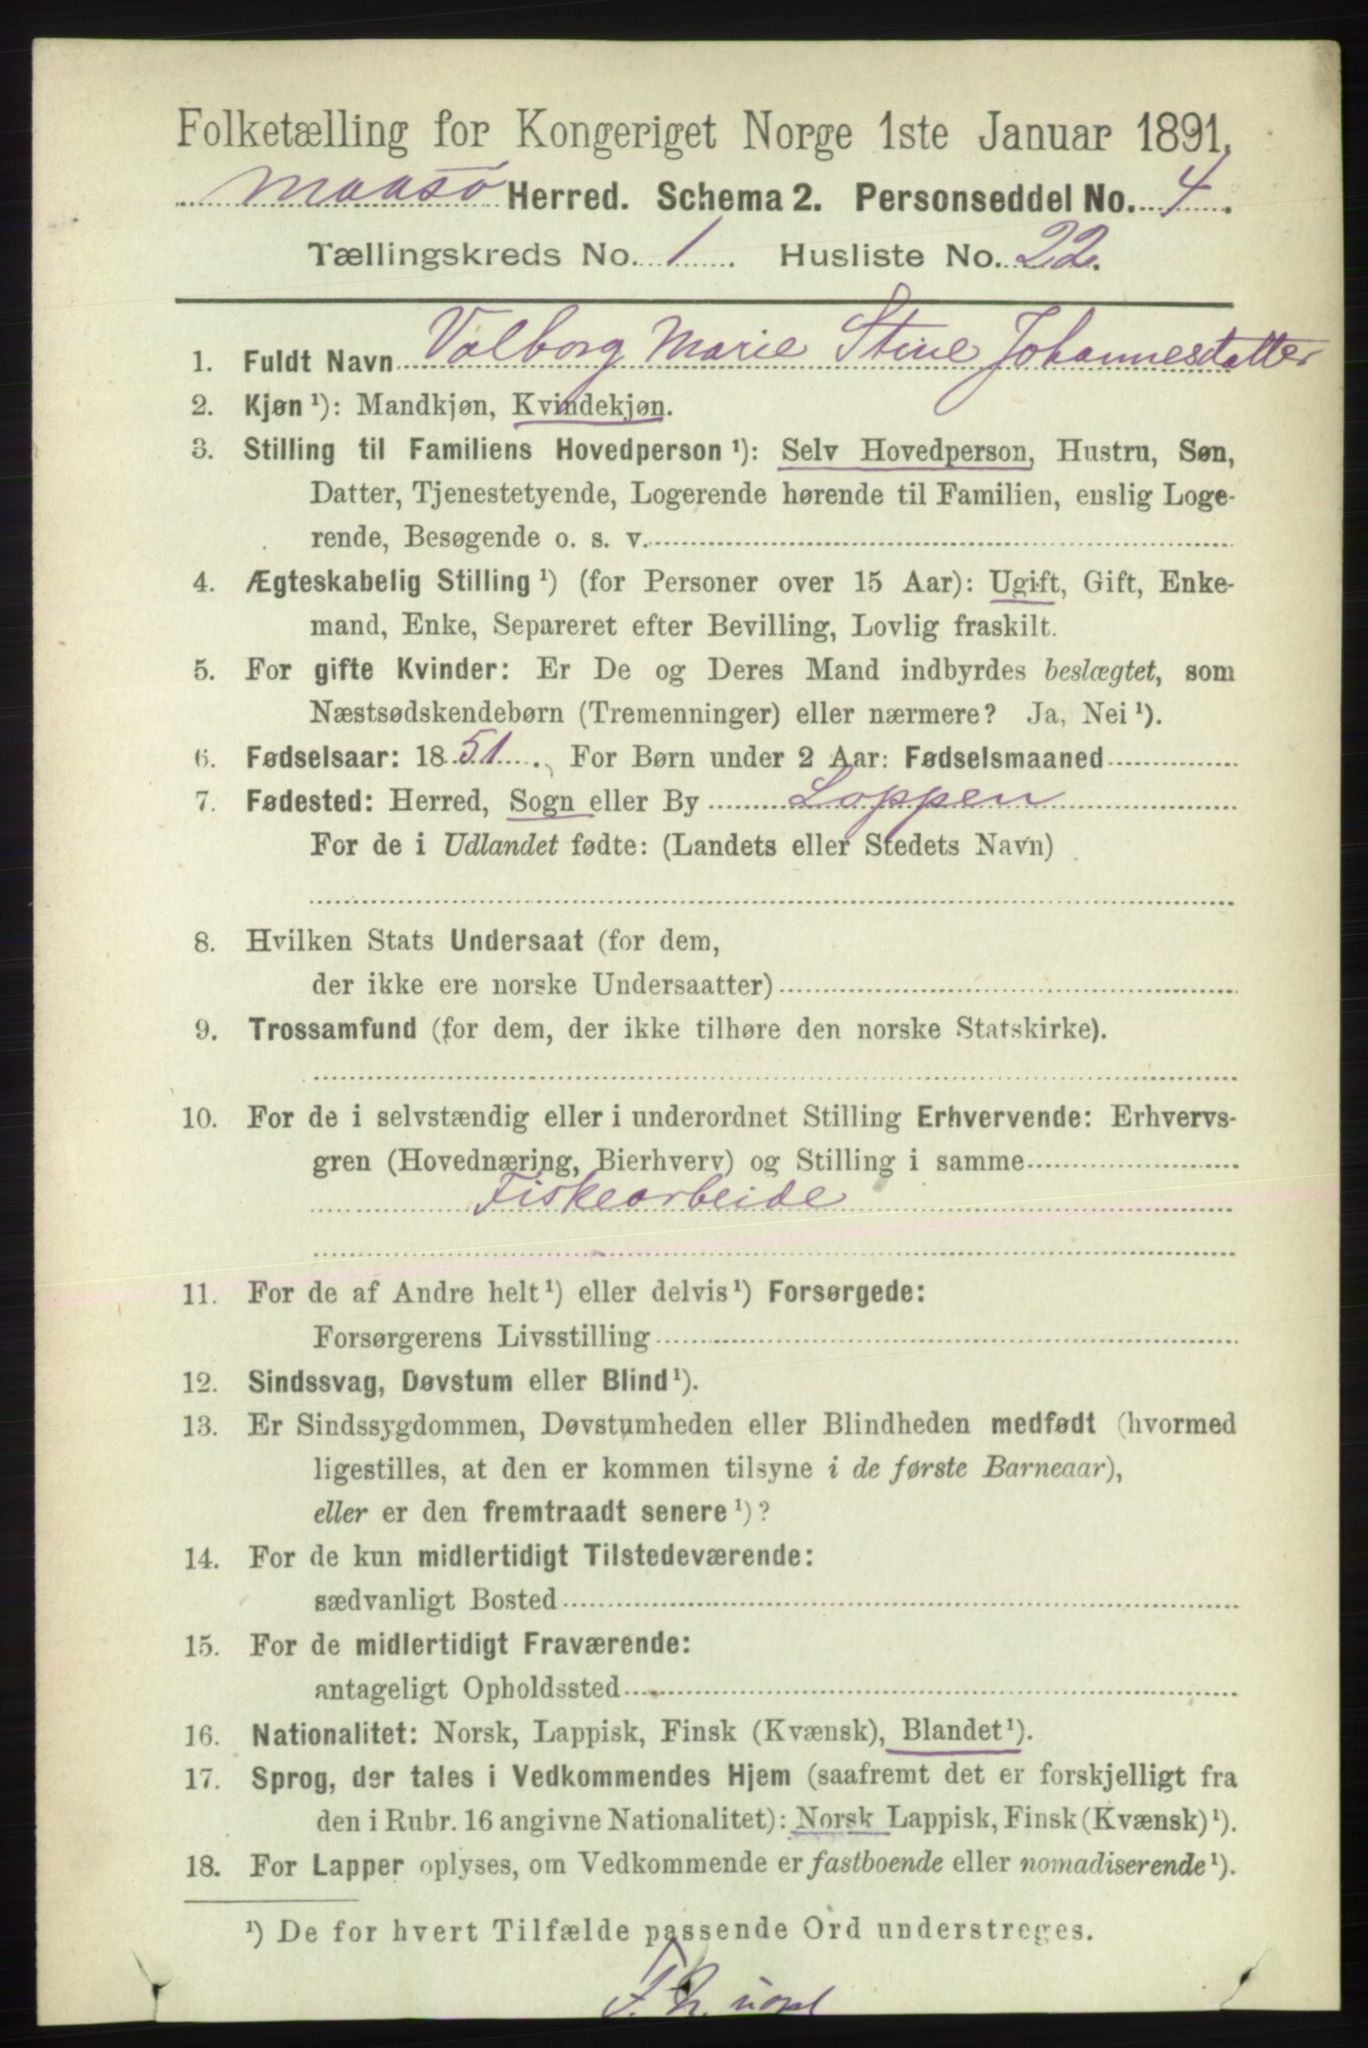 Folketælling for Kongeriget Norge 1ste Januar 1891.
Maasø Herred. Schema 2. Personseddel No. 4.
Tællingskreds No. 1. Husliste No. 22.
1. Fuldt Navn Valborg Marie Stine Johannesdatter
2. Kjøn¹): Mandkjøn, Kvindekjøn.
3. Stilling til Familiens Hovedperson¹): Selv Hovedperson, Hustru, Søn,
Datter, Tjenestetyende, Logerende hørende til Familien, enslig Loge-
rende, Besøgende o. s. v.
4. Ægteskabelig Stilling¹) (for Personer over 15 Aar): Ugift, Gift, Enke-
mand, Enke, Separeret efter Bevilling, Lovlig fraskilt.
5. For gifte Kvinder: Er De og Deres Mand indbyrdes beslægtet, som
Næstsødskendebørn (Tremenninger) eller nærmere? Ja, Nei¹).
6. Fødselsaar: 1851. For Børn under 2 Aar: Fødselsmaaned
7. Fødested: Herred, Sogn eller By Loppen
For de i Udlandet fødte: (Landets eller Stedets Navn)
8. Hvilken Stats Undersaat (for dem,
der ikke ere norske Undersaatter)
9. Trossamfund (for dem, der ikke tilhøre den norske Statskirke).
10. For de i selvstændig eller i underordnet Stilling Erhvervende: Erhvervs-
gren (Hovednæring, Bierhverv) og Stilling i samme
Fiskearbeide
11. For de af Andre helt¹) eller delvis¹) Forsørgede:
Forsørgerens Livsstilling
12. Sindssvag, Døvstum eller Blind¹).
13. Er Sindssygdommen, Døvstumheden eller Blindheden medfødt (hvormed
ligestilles, at den er kommen tilsyne i de første Barneaar),
eller er den fremtraadt senere¹)?
14. For de kun midlertidigt Tilstedeværende:
sædvanligt Bosted
15. For de midlertidigt Fraværende:
antageligt Opholdssted
16. Nationalitet: Norsk, Lappisk, Finsk (Kvænsk), Blandet¹).
17. Sprog, der tales i Vedkommendes Hjem (saafremt det er forskjelligt fra
den i Rubr. 16 angivne Nationalitet): Norsk Lappisk, Finsk (Kvænsk)¹).
18. For Lapper oplyses, om Vedkommende er fastboende eller nomadiserende¹).
¹) De for hvert Tilfælde passende Ord understreges.